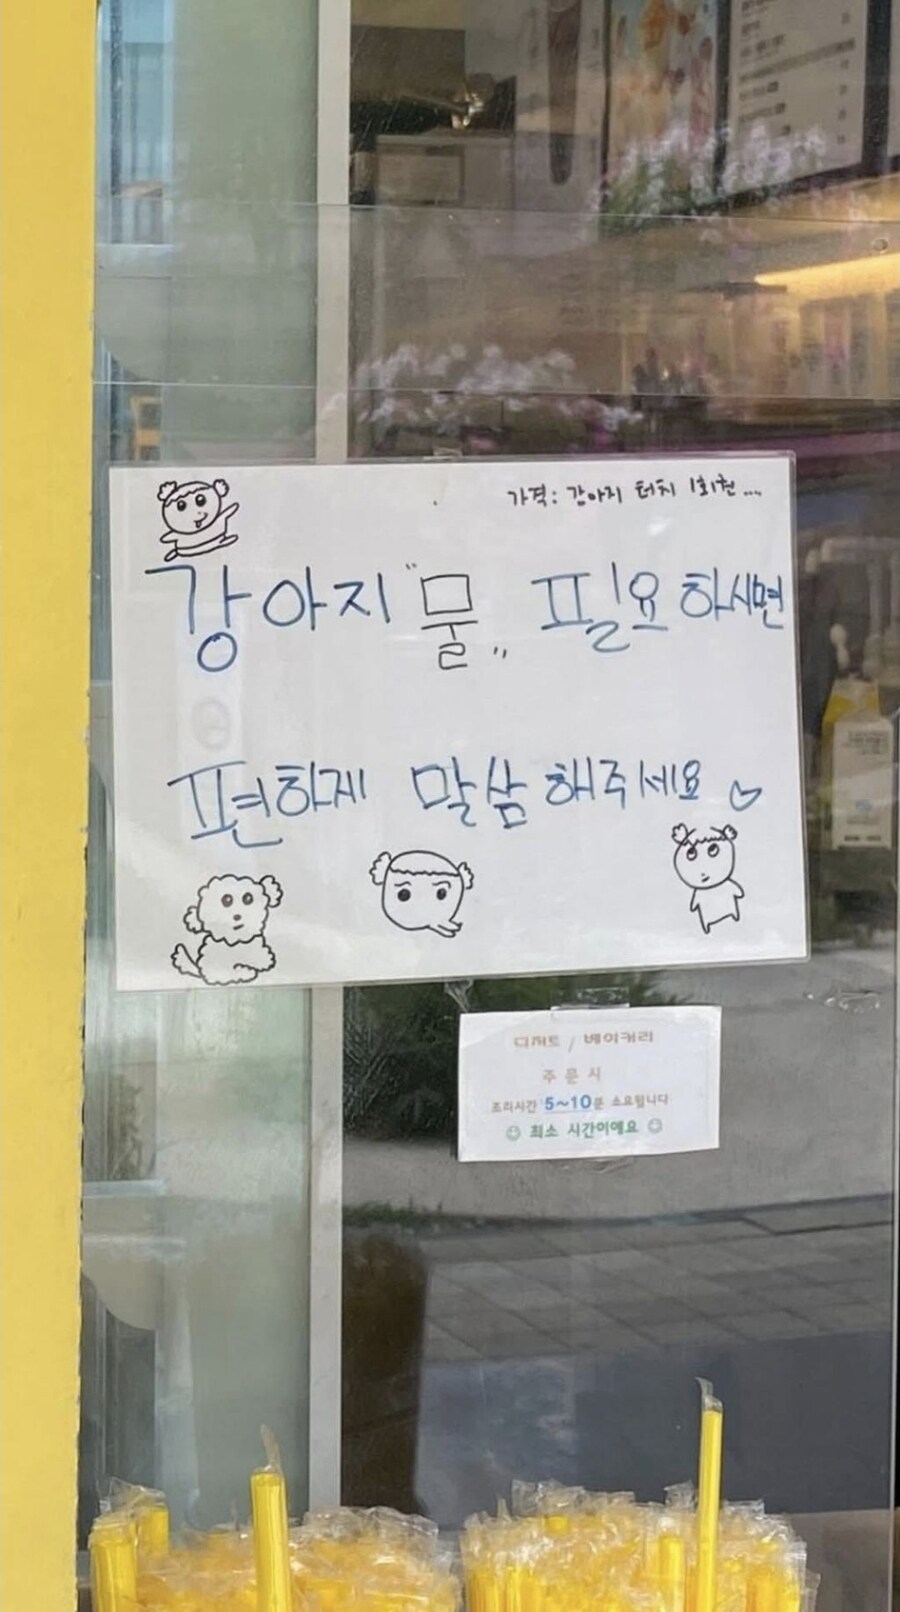 가격: 강아지 터치 1회권 ....
강아지 "물„ 필요하시면
편하게 말씀해주세요♡
디저트 / 베이커리
주 문 시
조리시간 5~10분 소요됩니다
☺ 최소 시간이예요 ☺